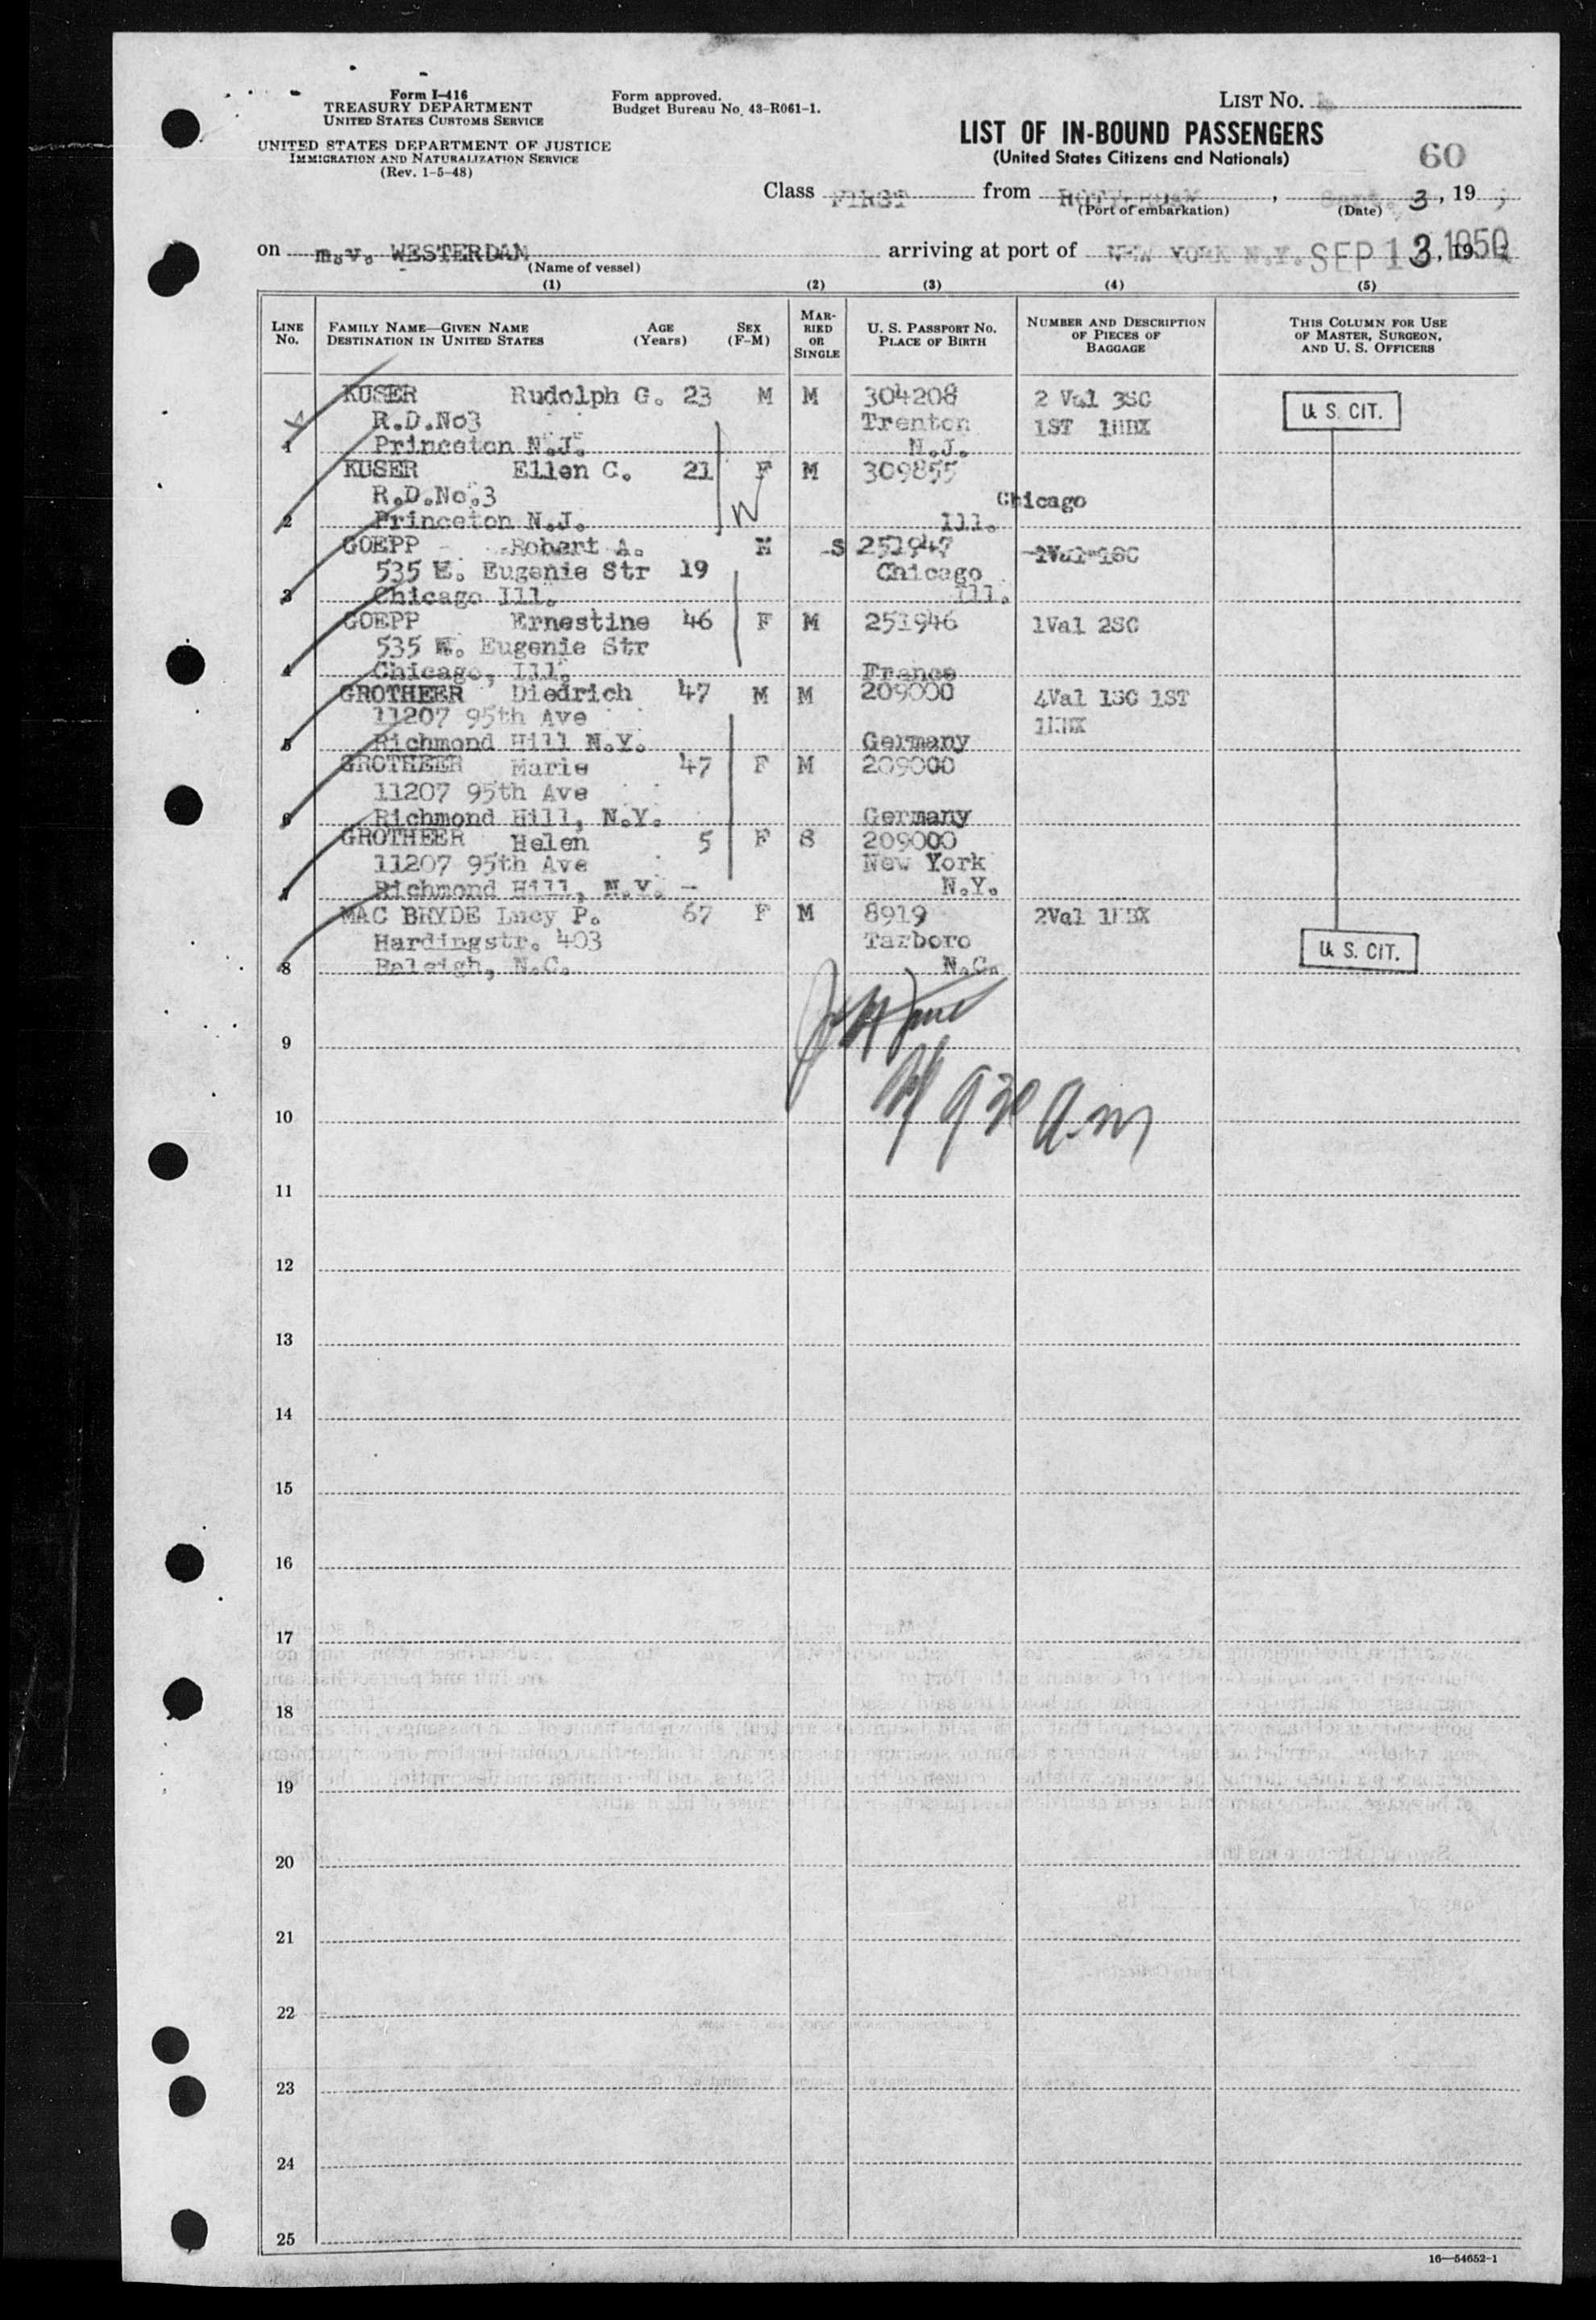 Form I-416
TREASURY DEPARTMENT
UNITED STATES CUSTOMS SERVICE
UNITED STATES DEPARTMENT OF JUSTICE
IMMIGRATION AND NATURALIZATION SERVICE
(Rev. 1-5-48)
Form approved.
Budget Bureau No. 43-R061-1.
LIST NO.
LIST OF IN-BOUND PASSENGERS
(United States Citizens and Nationals)
60
Class FIRST from ROTTERDAM, Sept. 3, 19
(Port of embarkation) (Date)
on m.v. WESTERDAM arriving at port of NEW YORK N.Y. SEP 13 1950, 19
(Name of vessel)
(1) (2) (3) (4) (5)
LINE NO.
FAMILY NAME—GIVEN NAME
DESTINATION IN UNITED STATES
AGE (Years)
SEX (F-M)
MARRIED OR SINGLE
U. S. PASSPORT NO.
PLACE OF BIRTH
NUMBER AND DESCRIPTION OF PIECES OF BAGGAGE
THIS COLUMN FOR USE OF MASTER, SURGEON, AND U. S. OFFICERS
KUSER Rudolph G. 23 M M 304208 2 Val 3SC U. S. CIT.
R.D.No3 Trenton 1ST 1HBX
1 Princeton N.J. N.J.
KUSER Ellen C. 21 F M 309855
R.D.No.3 Chicago
2 Princeton N.J. Ill.
GOEPP Robert A. M S 251947 1Val 1SC
535 W. Eugenie Str 19 Chicago
3 Chicago Ill. Ill.
GOEPP Ernestine 46 F M 251946 1Val 2SC
535 W. Eugenie Str
4 Chicago, Ill. France
GROTHEER Diedrich 47 M M 209000 4Val 1SC 1ST
11207 95th Ave 1HBX
5 Richmond Hill N.Y. Germany
GROTHEER Marie 47 F M 209000
11207 95th Ave
6 Richmond Hill, N.Y. Germany
GROTHEER Helen 5 F S 209000
11207 95th Ave New York
7 Richmond Hill, N.Y. N.Y.
MAC BRYDE Lucy P. 67 F M 8919 2Val 1HBX
Hardingstr. 403 Tarboro U. S. CIT.
8 Raleigh, N.C. N.C.
9
10
9 30 a.m
11
12
13
14
15
16
17
18
19
20
21
22
23
24
25
16—54652-1